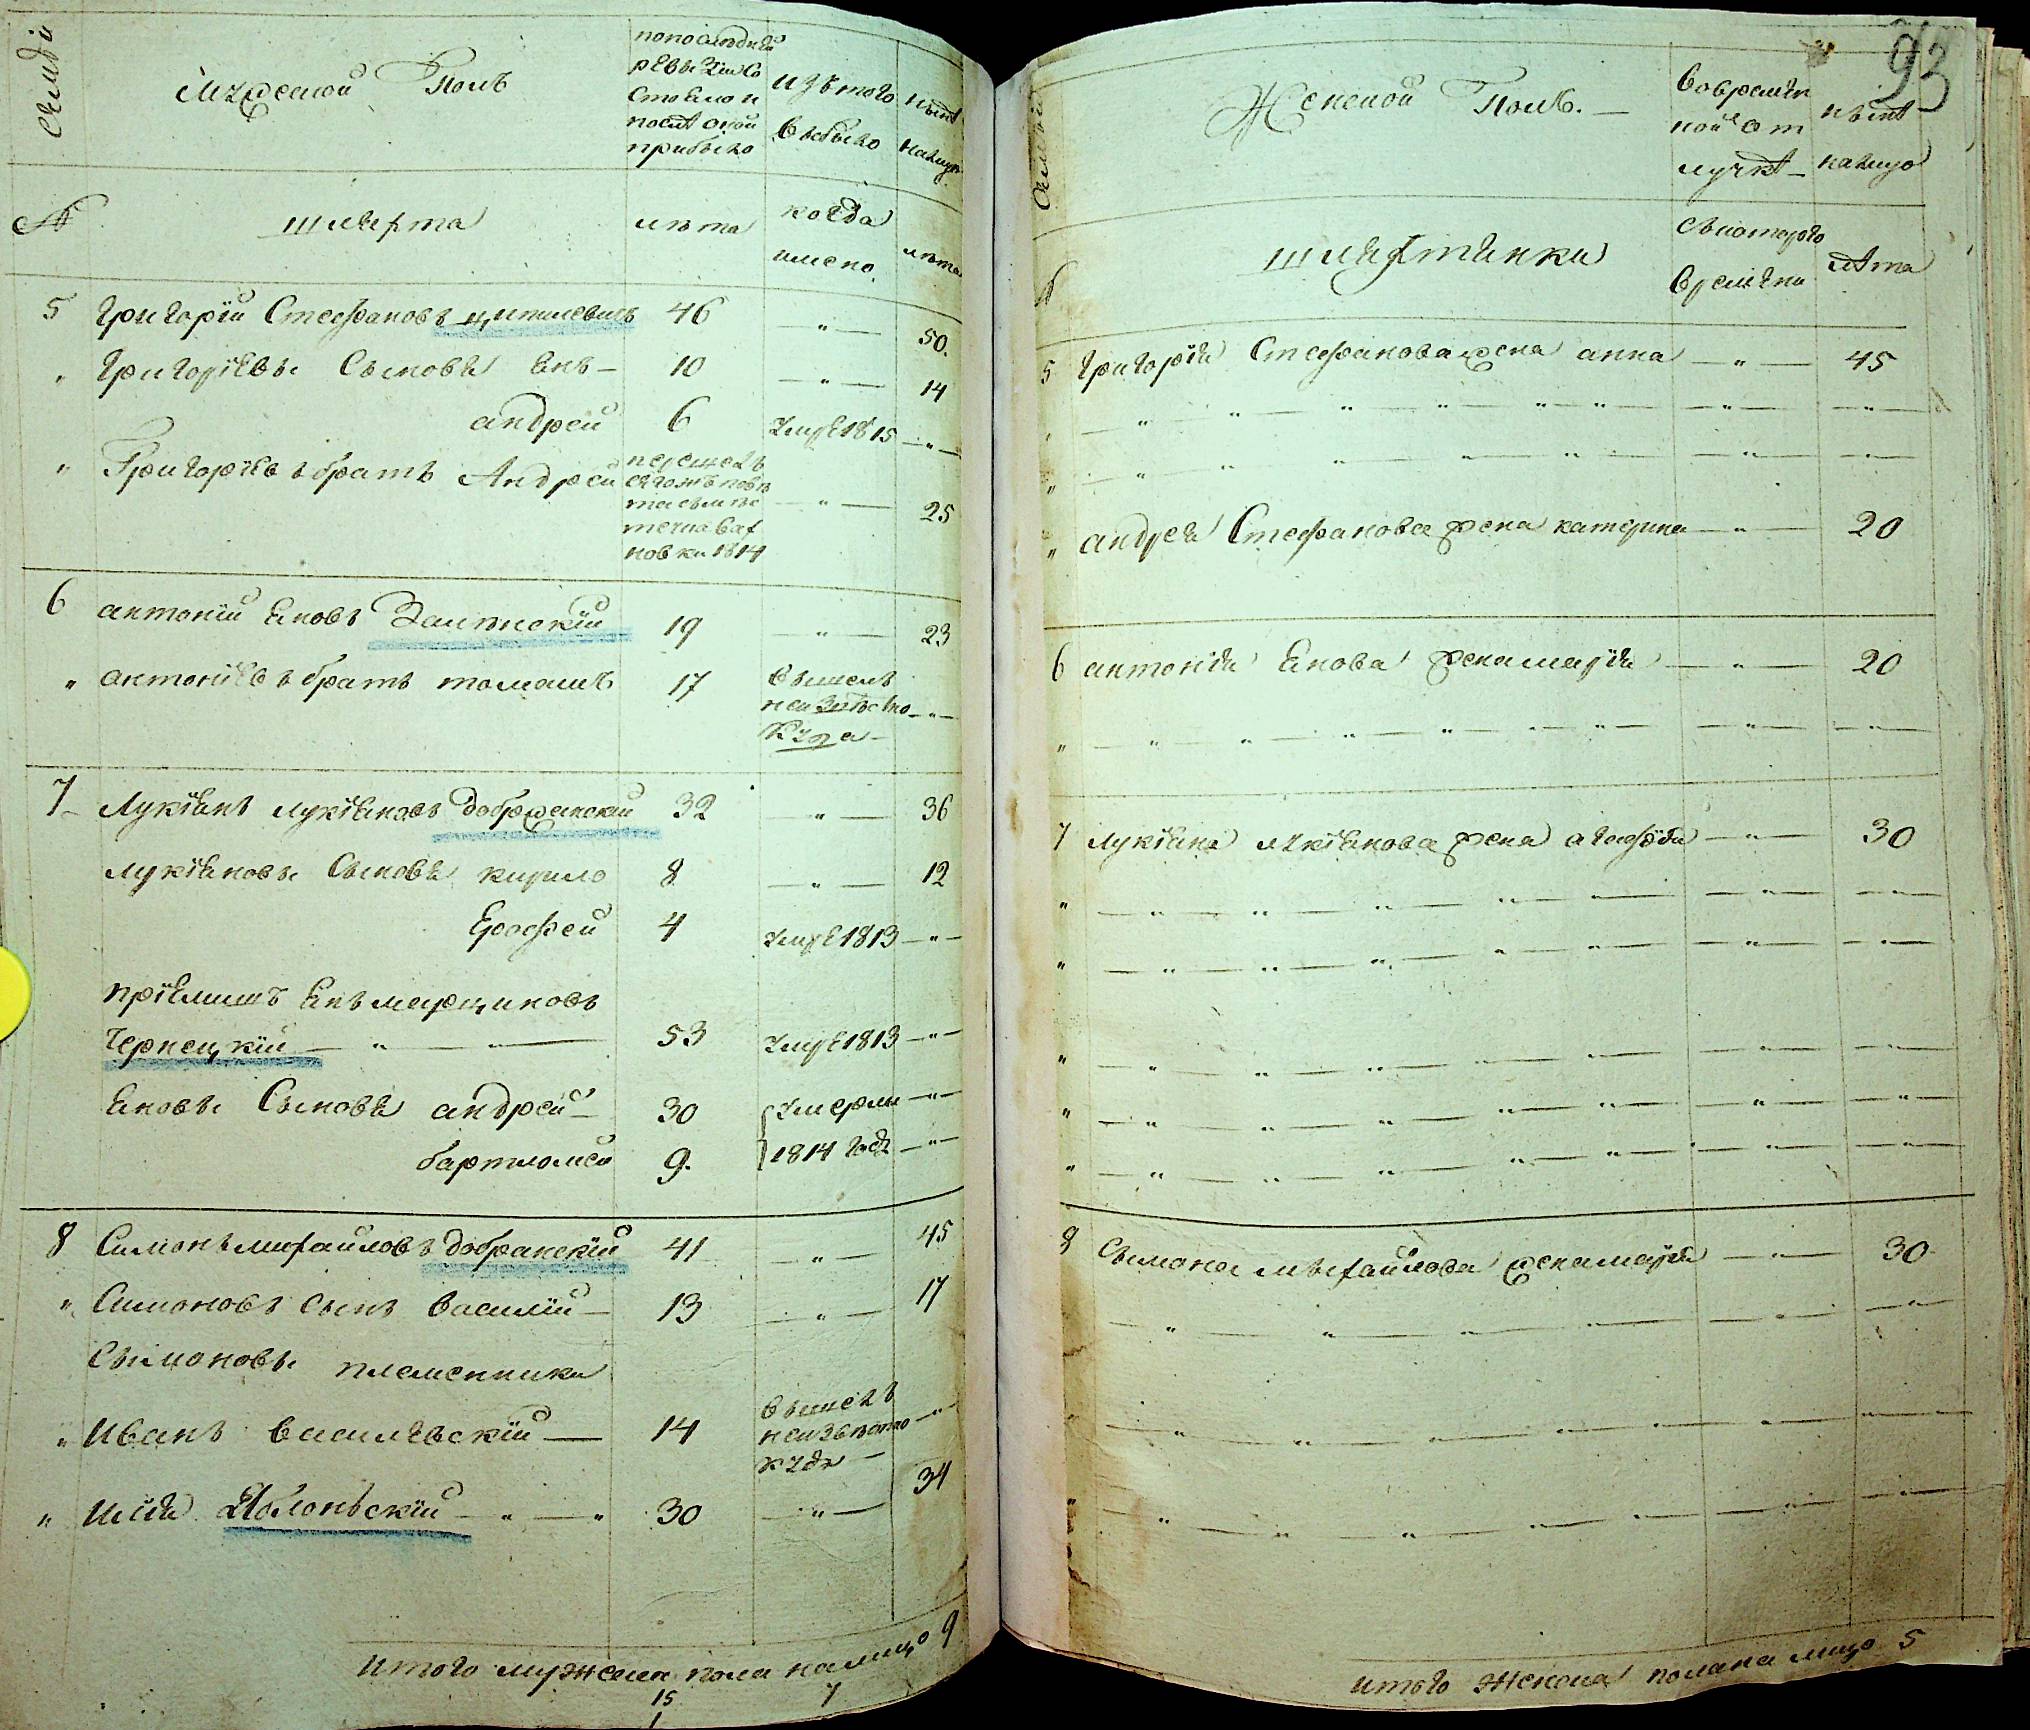 семьи
Мужеской Полъ
попоследней
ревизии Со
стояло и
после оной
прибыло
изътого
Выбыло
ныне
налицо
№
шляхта
лета
когда
имено
лета
5 Григорій Стефановъ 46 — " — 50.
" Григоріевы Сыновя Янъ — 10 — " — 14
андрей 6 умре 1815 — " —
" Григоріевъ братъ Андрей — " — 25
новки 1814
6 антоній Яновъ Залескій 19 — " — 23
" антоніевъ братъ томашъ 17 вышелъ
неизвѣстно — " —
Куда —
7 Лукіянъ лукіяновъ добржанскій 32 — " — 36
лукіяновы Сыновя кирило 8 — " — 12
Ерофей 4 умре 1813 — " —
пріемышъ Янъ марциновъ
Чернецкій — " — 53 умре 1813 — " —
Яновы Сыновя андрей — 30 умерли — " —
бартломей 9. 1814 года — " —
8 Симонъ михайловъ добранскій 41 — " — 45
" Симоновъ сынъ василій — 13 — " — 17
Сымоновы племенники
" Иванъ василевскій — 14 вышелъ
неизвѣстно — " —
куда —
" Илія Яблонскій — " — " 30 — " — 34
итого мужеск пола налицо 9
15 7
1
93
семьи
Женской Полъ. —
вовремен
ной от
лучке —
ныне
налицо
№
шляхтянки
съкоторого
времени
лета
5 григорія Стефанова жена анна — " — 45
" андрея Стефанова жена катерина — " — 20
6 антонія Янова жена марія — " — 20
7 лукіяна лукіянова жена агафія — " — 30
8 Сымона михайлова жена марія — " — 30
итого женска пола на лицо 5